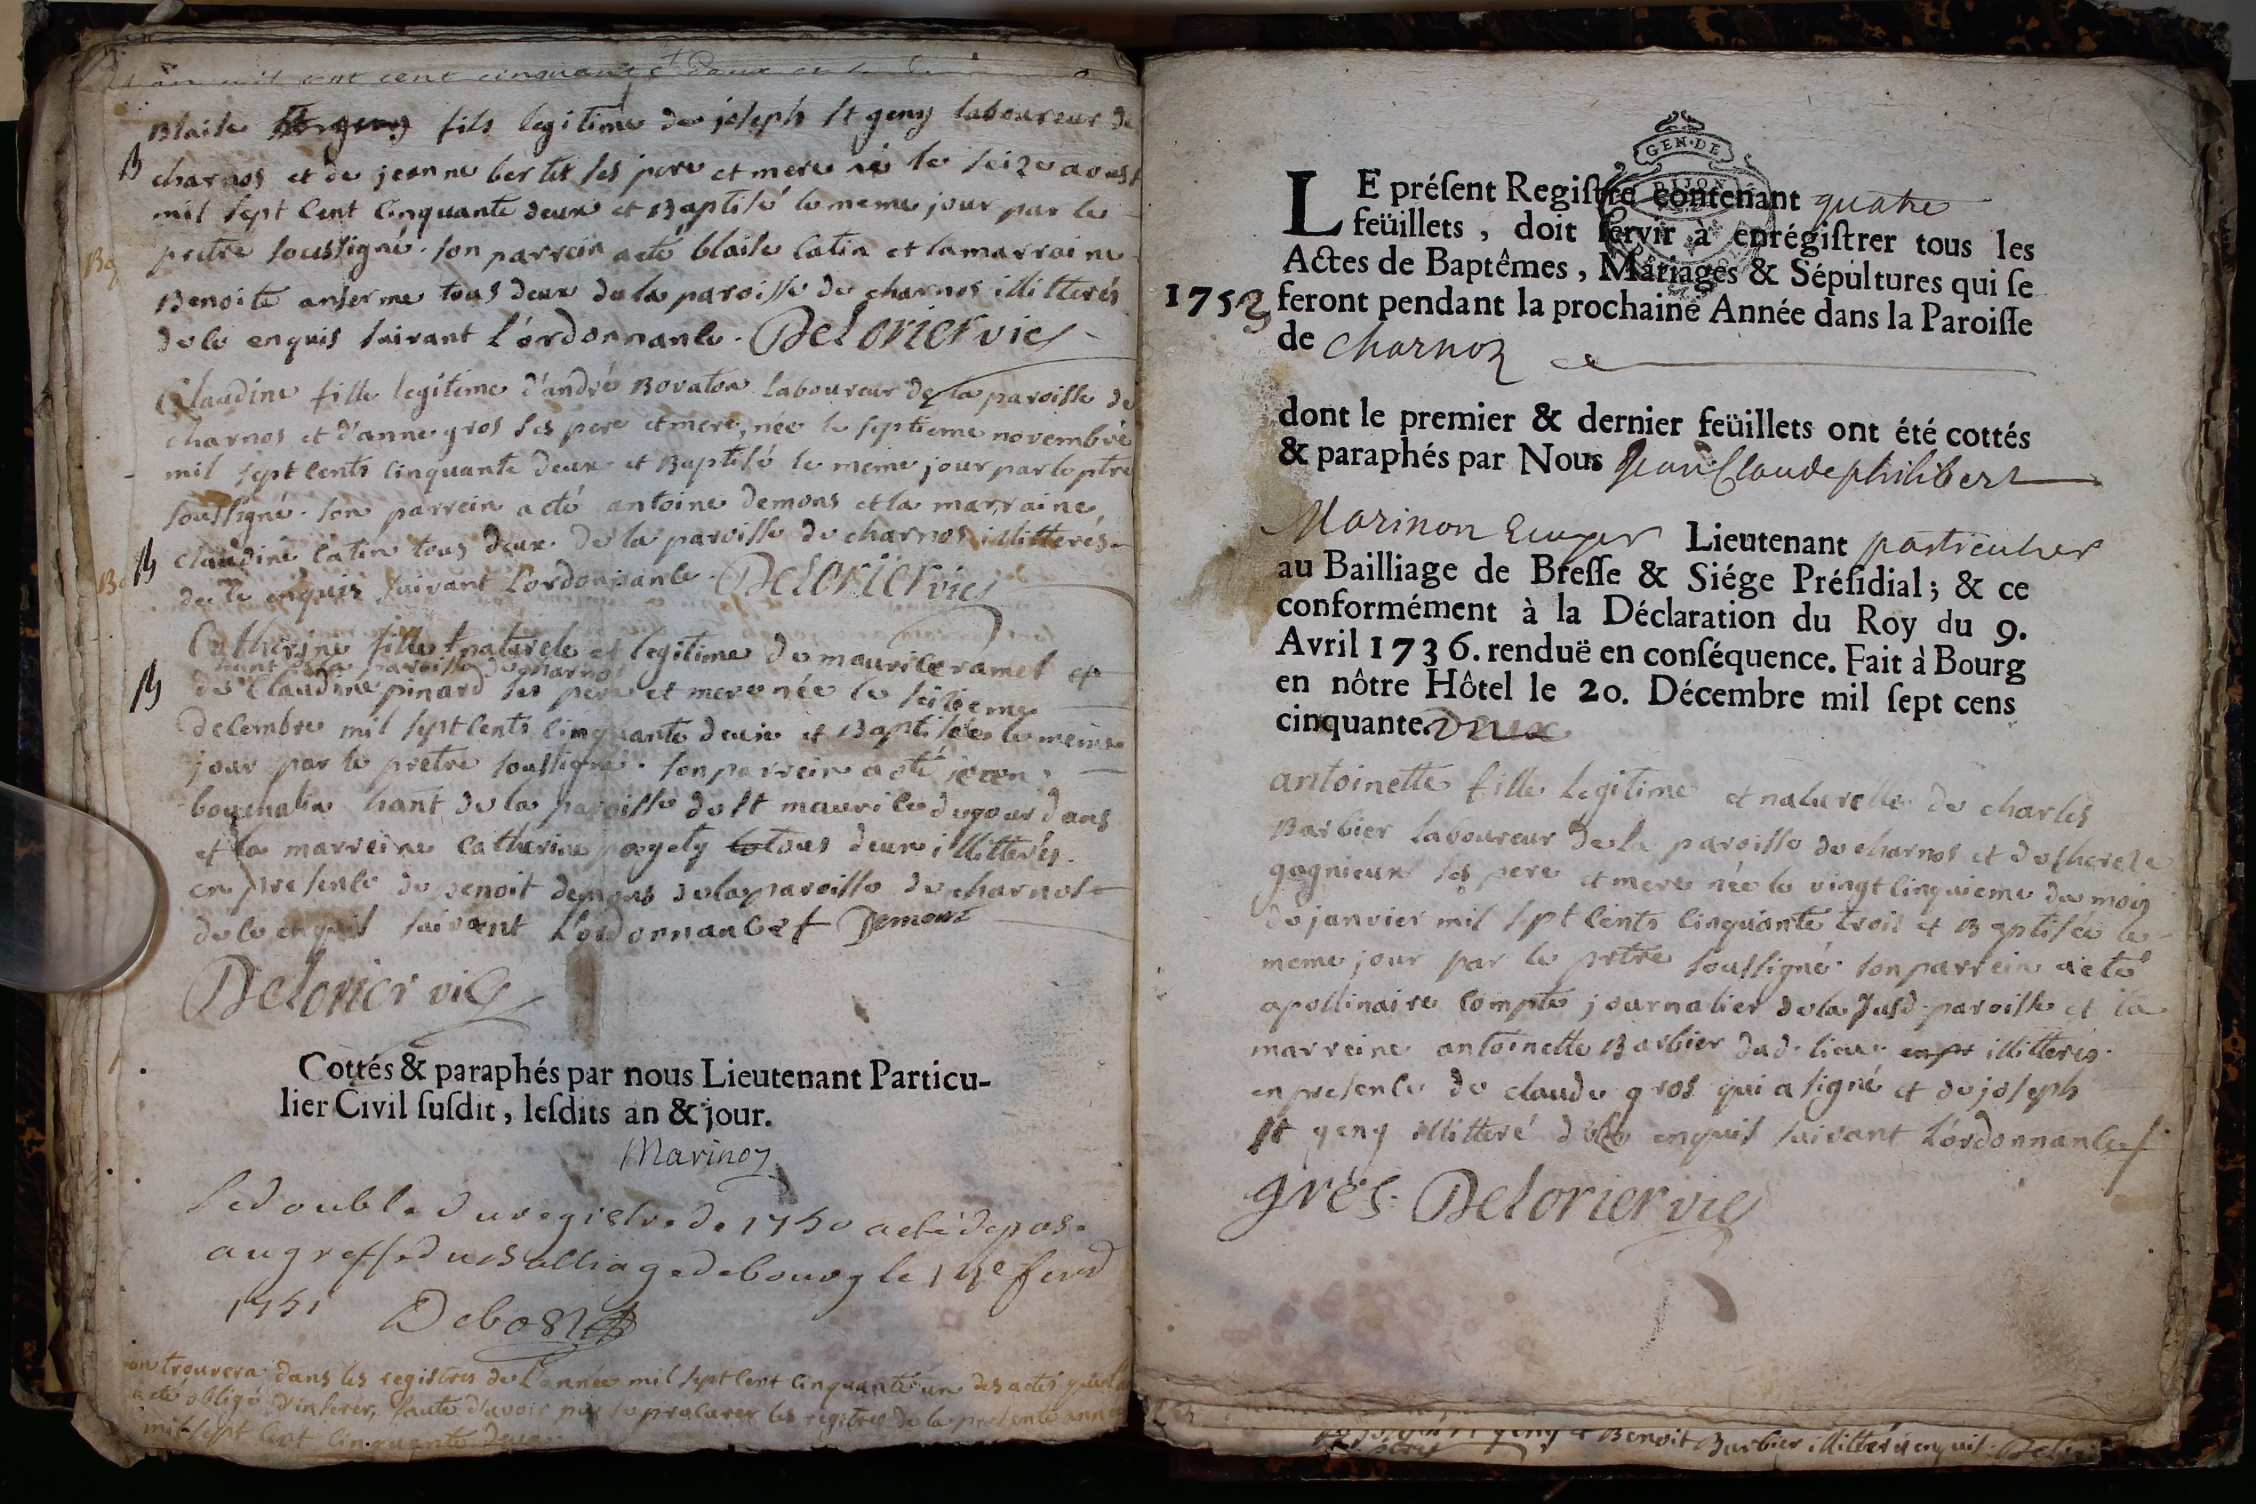 Blaise fils legitime de joseph st geny laboureur de
charnos et de jeanne berlet ses pere et mere né le seize aoust
mil sept cent cinquante deux et Baptisé le meme jour par le
pretre soussigné. son parrein a eté blaise catin et la marraine
Benoite anserme tous deux de la paroisse de charnos illitterés
de ce enquis suivant l'ordonnance. Delorier vic
Claudine fille legitime d'andré Bovaton laboureur de la paroisse de
charnos et d'anne gros ses pere et mere, née le septieme novembre
mil sept cents cinquante deux et Baptisé le meme jour par le ptre
soussigné. son parrein a eté antoine demons et la marraine
claudine catin tous deux de la paroisse de charnos illitterés
de ce enquis suivant l'ordonnance. Delorier vic
Catherine fille naturele et legitime de maurice ramel et
hant de la paroisse de charnos
de Claudine pinard ses pere et mere née le seizieme
decembre mil sept cents cinquante deux et Baptisée le meme
jour par le pretre soussigné. son parrein a eté jean
hant de la paroisse de st maurice de gourdans
et la marreine catherine tous deux illitterés.
en presence de benoit demons de la paroisse de charnos
de ce enquis suivant l'ordonnance Demons
Delorier vic
Cottés & paraphés par nous Lieutenant Particu-
lier Civil susdit, lesdits an & jour.
Marinon
Le double du registre de 1750 a eté deposé
au greffe du Balliage de bourg le
1751
on trouvera dans les registres de l'année mil sept cent cinquante un des actes qu'on
a eté obligé d'inserer, faute d'avoir pu se procurer les registres de la presente année
mil sept cent cinquante deux
GEN·DE
DIJON
LE présent Registre contenant quatre
feüillets, doit servir à enrégistrer tous les
Actes de Baptêmes, Mariages & Sépultures qui se
1753 feront pendant la prochaine Année dans la Paroisse
de Charnoz
dont le premier & dernier feüillets ont été cottés
& paraphés par Nous Jean Claude philibert
Marinon Lieutenant particulier
au Bailliage de Bresse & Siége Présidial; & ce
conformément à la Déclaration du Roy du 9.
Avril 1736. renduë en conséquence. Fait à Bourg
en nôtre Hôtel le 20. Décembre mil sept cens
cinquante deux
antoinette fille legitime et naturelle de charles
Barbier laboureur de la paroisse de charnos et de therese
gagnieux ses pere et mere née le vingt cinquieme du mois
de janvier mil spt cents cinquante trois et Baptisée le
meme jour par le prtre soussigné son parrein a eté
apollinaire compte journalier de la susd. paroisse et la
marreine antoinette Barbier dud. lieu illitterés.
en presence de claude gros qui a signé et de joseph
st geny illitteré de ce enquis suivant l'ordonnance
gros. Delorier vic
geny & Benoit Barbier illitterés enquis